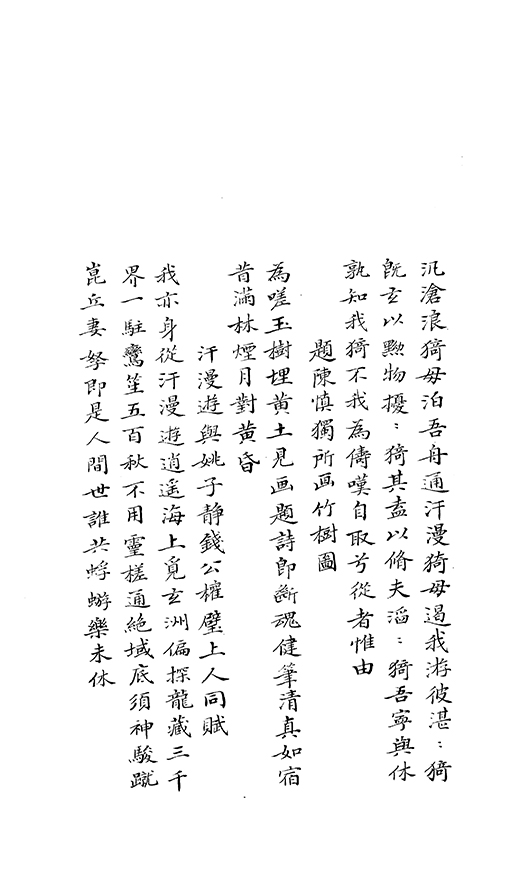 汎滄浪猗毋泊吾舟通汗漫猗毋遏我游彼湛〻猗
既玄以黝物擾〻猗其盍以脩夫滔〻猗吾寧與休
孰知我猗不我為儔嘆自取兮從者惟由
題陳慎獨所画竹樹圖
為嗟玉樹埋黃土見画題詩即斷魂健筆清真如宿
昔滿林煙月對黃昏
汗漫遊與姚子靜錢公權璧上人同賦
我亦身從汗漫遊逍遙海上覓玄洲偏探龍藏三千
界一駐鸞笙五百秋不用靈槎通絶域底須神駿蹴
崑丘妻孥即是人間世誰共蜉蝣樂未休